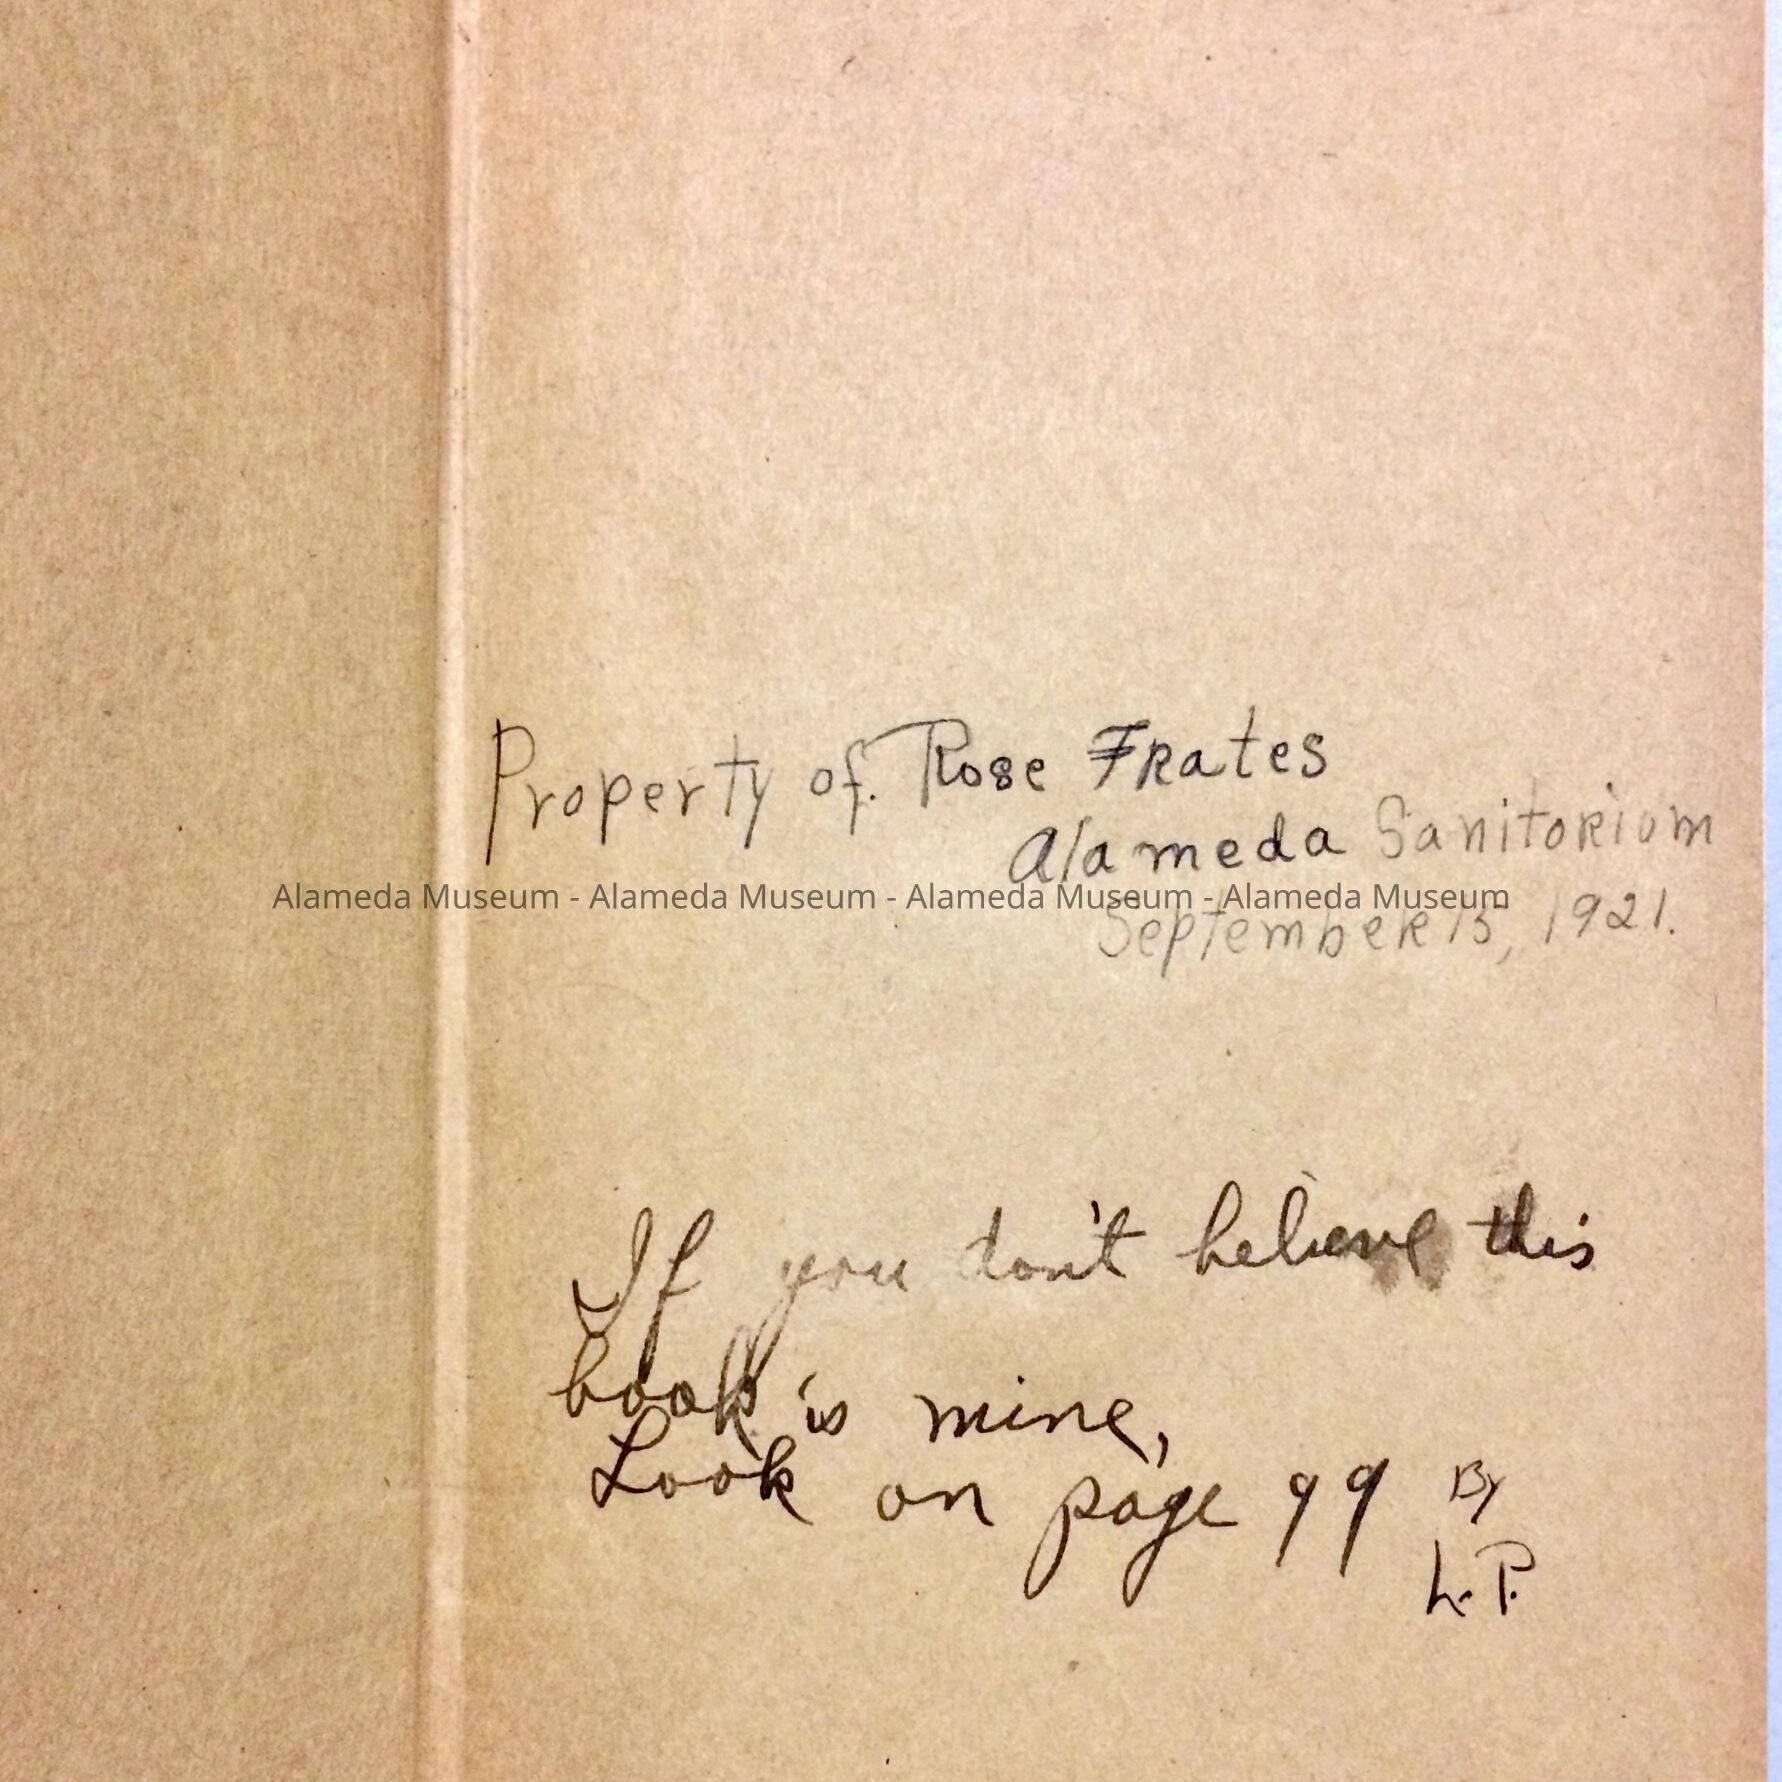 Property of. Rose Frates
Alameda Sanitorium
Alameda Museum - Alameda Museum - Alameda Museum - Alameda Museum
September 15, 1921.
If you don't believe this
book is mine,
Look on page 99 By
L. P.